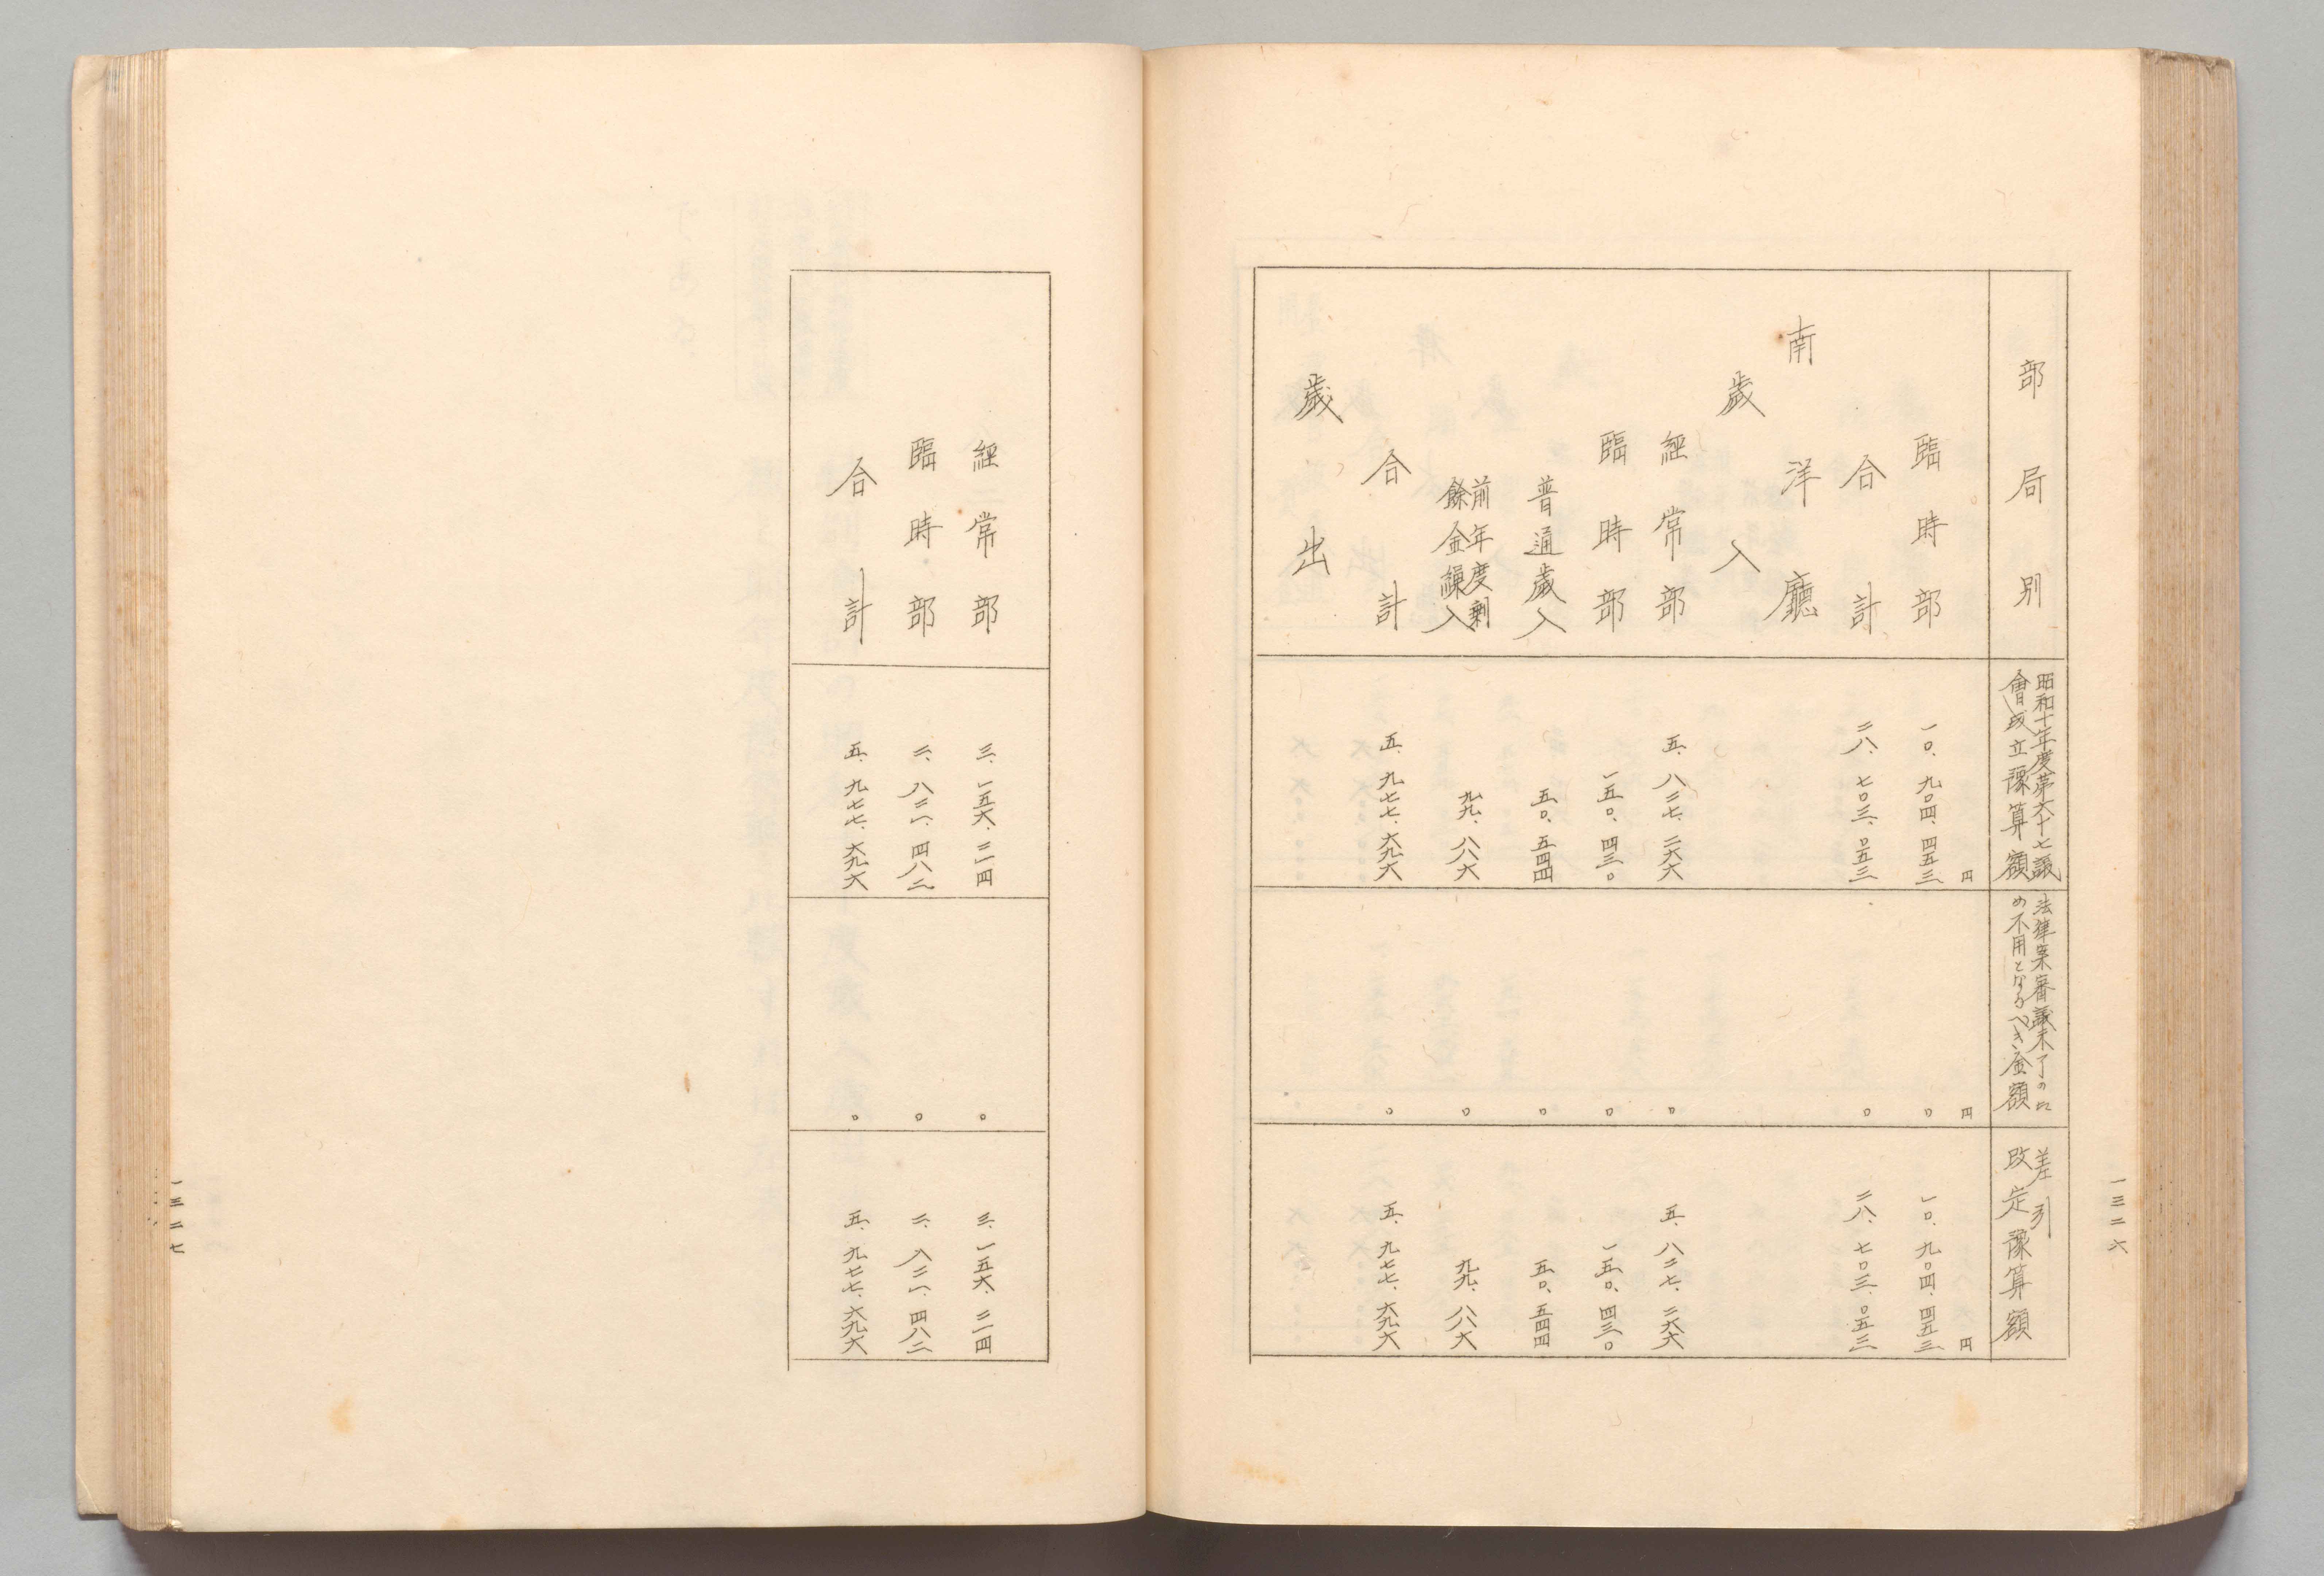 部局別
昭和十年度第六十七議
會成立豫算額
法律案審議未了の爲
め不用となるべき金額
差引
改定豫算額
円 円 円
臨時部 一〇、九〇四、四五三 〇 一〇、九〇四、四五三
合計 二八、七〇三、〇五三 〇 二八、七〇三、〇五三
南洋廳
歳入
經常部 五、八二七、二六六 〇 五、八二七、二六六
臨時部 一五〇、四三〇 〇 一五〇、四三〇
普通歳入 五〇、五四四 〇 五〇、五四四
前年度剰
餘金繰入 九九、八八六 〇 九九、八八六
合計 五、九七七、六九六 〇 五、九七七、六九六
歳出
一三二六
經常部 三、一五六、二一四 〇 三、一五六、二一四
臨時部 二、八二一、四八二 〇 二、八二一、四八二
合計 五、九七七、六九六 〇 五、九七七、六九六
一三二七